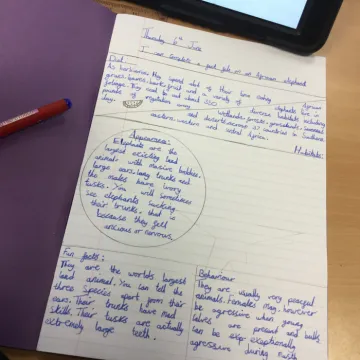 Thursday 6th June
I can complete a fact file on an African elephant
Diet
As herbivores, they spend alot of their time eating
grass, leaves, bark, fruit and a variety of
foliage. They need to eat about 300
pounds of vegetation every
day.
African
elephants live in
diverse habitats including
wetlands, forests, grasslands, savannah
and deserts across 37 countries in Southern,
eastern, western and central Africa.
Habitats:
Appearance:
Elephants are the
largest existing land
animal with massive bodies,
large ears, long trunks and
the males have ivory
tusks. You will sometimes
see elephants sucking
their trunks, that is
because they feel
anxious or nervous.
Fun facts:
They are the worlds largest
land animal. You can tell the
three species apart from their
ears. Their trunks have mad
skills. Their tusks are actually
extremely large teeth.
Behaviour
They are usually very peaceful
animals. Females may, however
be aggressive when young
calves are present and bulls
can be exceptionally
agressive during